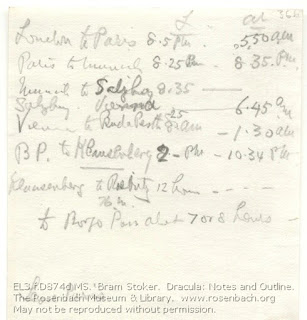 L at 36b
London to Paris 8.5 Pm. 5.50 am.
Paris to Munich 8.25 Pm - 8.35. P.m.
Munich to Salzburg 8.35 —
Salzburg Vienna - 6.45 am
Vienna to Buda Pesth 8.25 am - 1.30 am
B.P. to Klausenberg 2 - Pm - 10.34 Pm
Klausenberg to Bistritz 12 hours - - - -
to Borgo Pass about 7 or 8 hours -
EL3 f.D874d MS. Bram Stoker. Dracula: Notes and Outline.
The Rosenbach Museum & Library. www.rosenbach.org
May not be reproduced without permission.